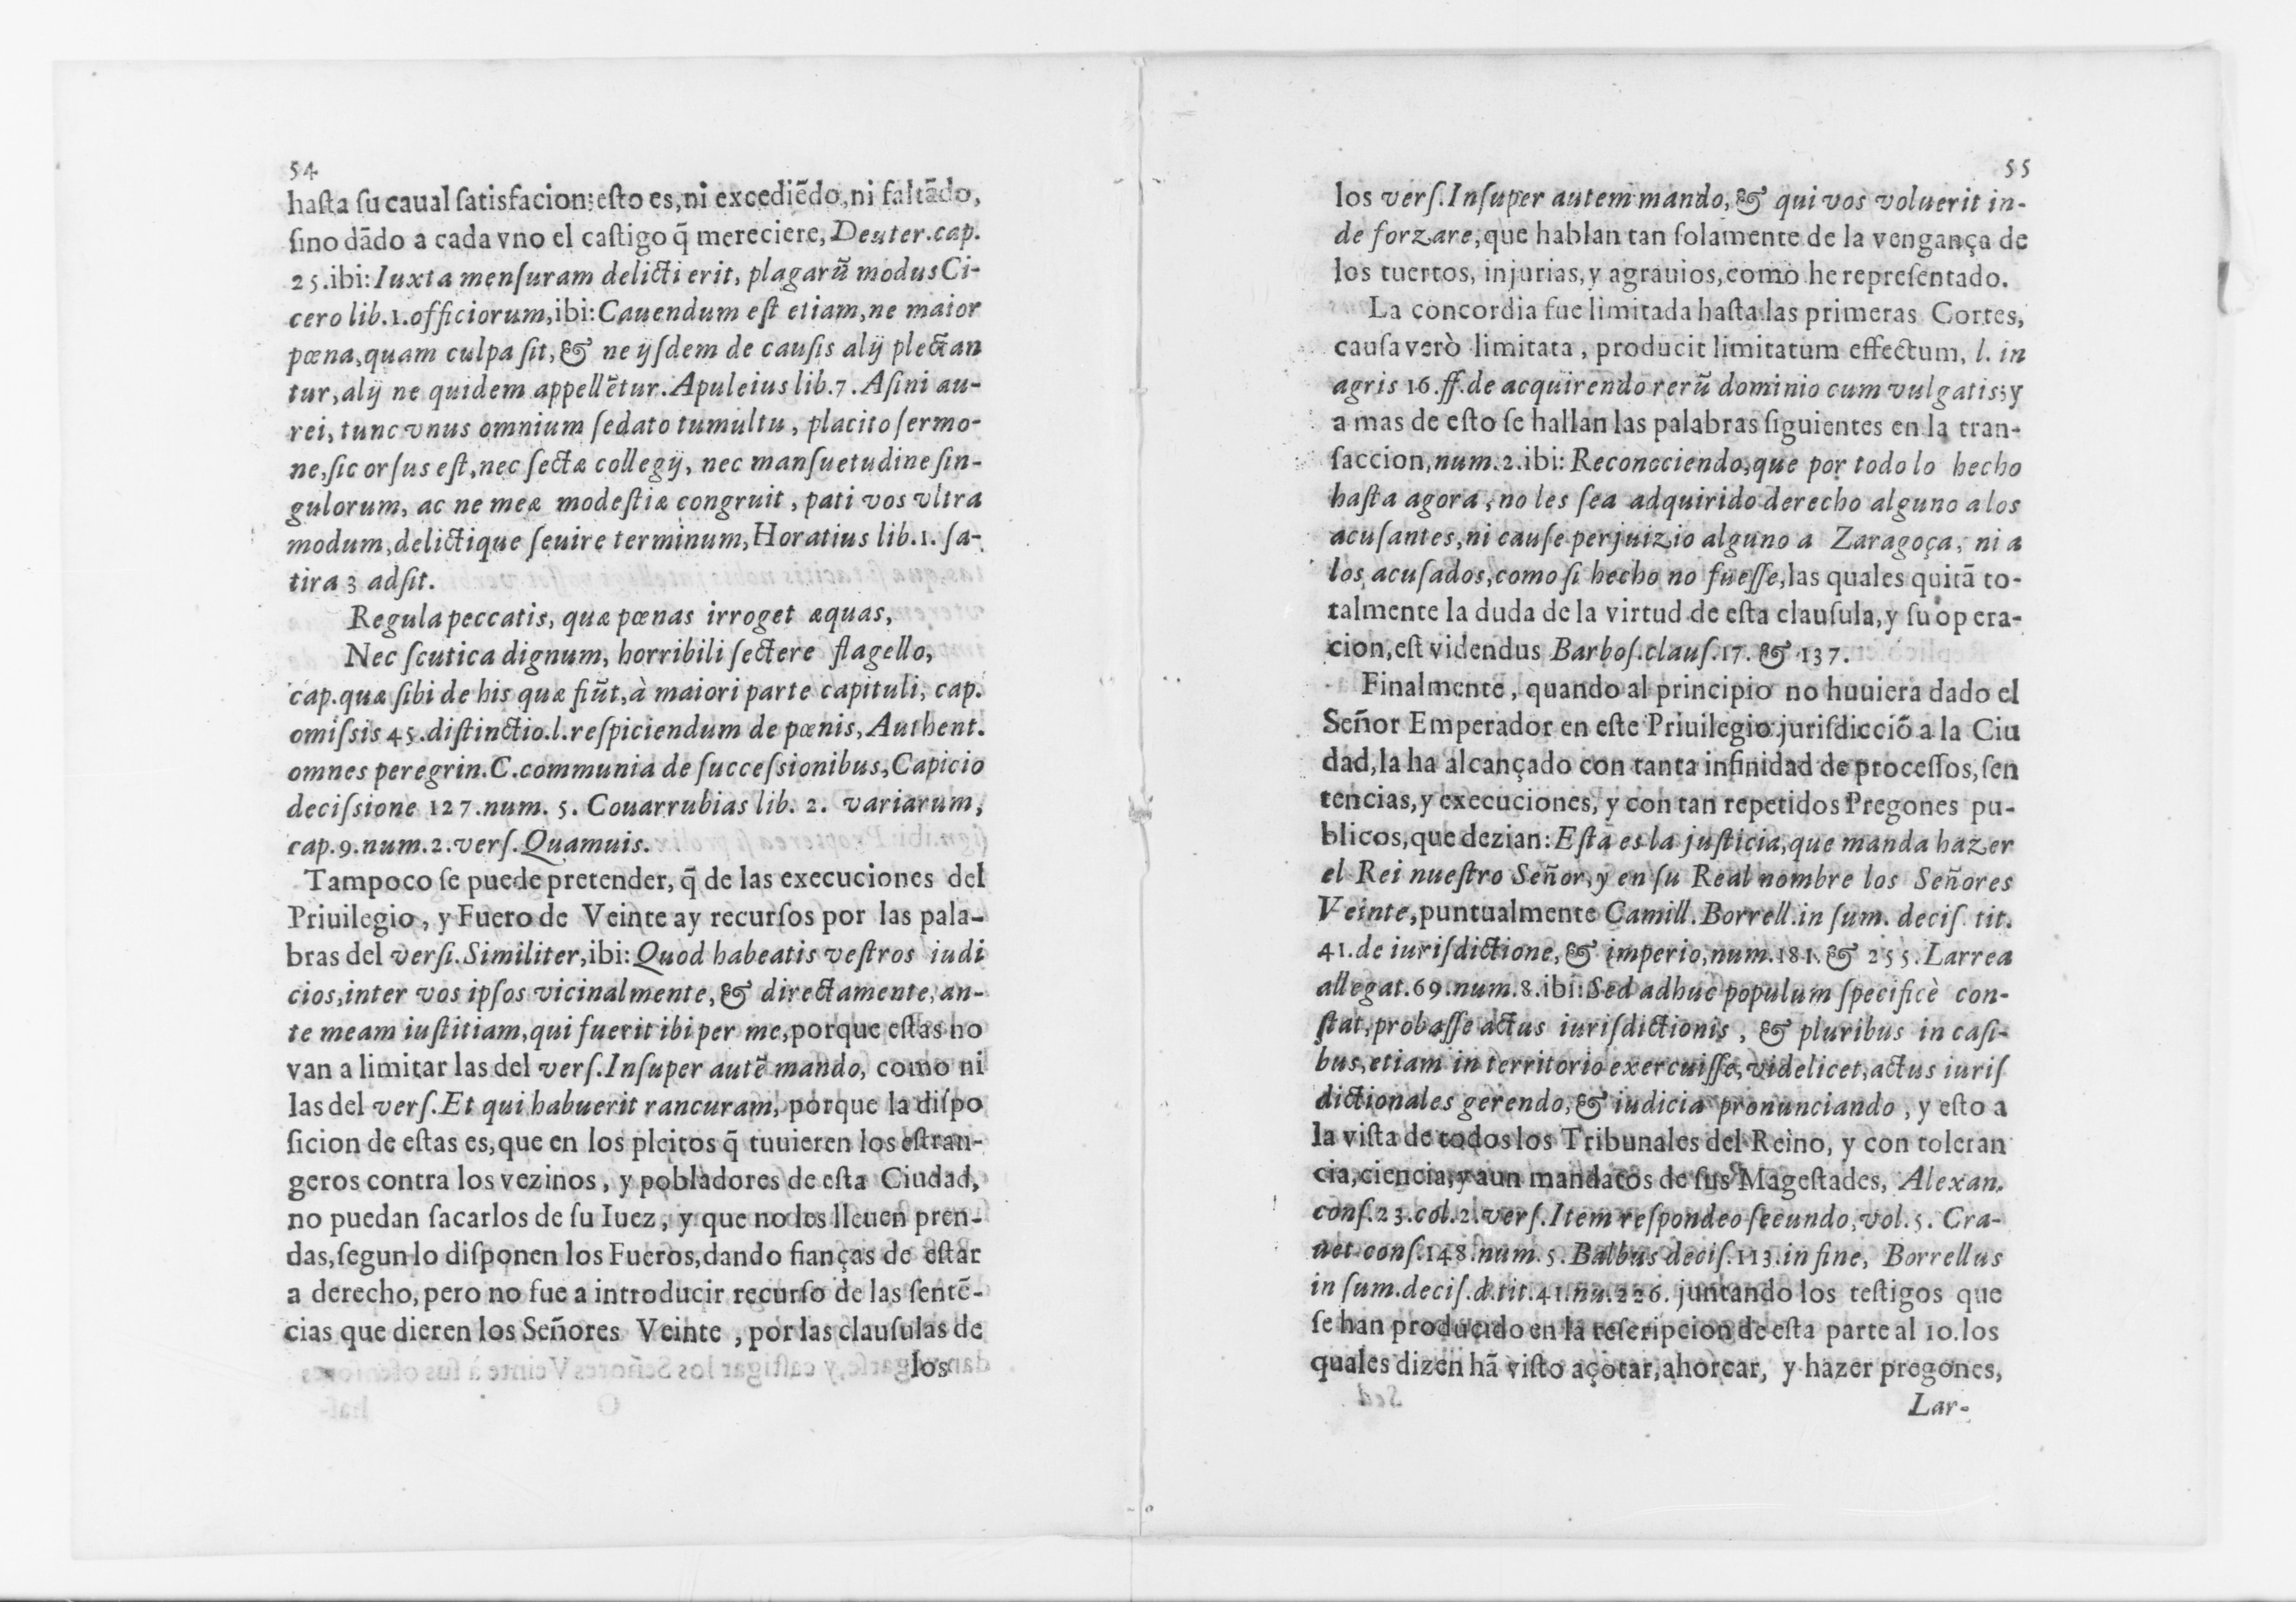 54
hasta ſu caual ſatisfacion: eſto es, ni excediẽdo, ni faltãdo,
ſino dãdo a cada vno el caſtigo q̃ mereciere, Deuter. cap.
25. ibi: Iuxta menſuram delicti erit, plagarũ modus Ci-
cero lib. 1. officiorum, ibi: Cauendum eſt etiam, ne maior
pœna, quam culpa ſit, & ne ijſdem de cauſis alij plectan
tur, alij ne quidem appellẽtur. Apuleius lib. 7. Aſini au-
rei, tunc vnus omnium ſedato tumultu, placito ſermo-
ne, ſic orſus eſt, nec ſectæ collegij, nec manſuetudine ſin-
gulorum, ac ne meæ modeſtiæ congruit, pati vos vltra
modum, delictique ſeuire terminum, Horatius lib. 1. ſa-
tira 3 adſit.
Regula peccatis, quæ pœnas irroget æquas,
Nec ſcutica dignum, horribili ſectere flagello,
cap. quæ ſibi de his quæ fiũt, à maiori parte capituli, cap.
omiſsis 45. diſtinctio. l. reſpiciendum de pœnis, Authent.
omnes peregrin. C. communia de ſucceſsionibus, Capicio
deciſsione 127. num. 5. Couarrubias lib. 2. variarum,
cap. 9. num. 2. verſ. Quamuis.
Tampoco ſe puede pretender, q̃ de las execuciones del
Priuilegio, y Fuero de Veinte ay recurſos por las pala-
bras del verſi. Similiter, ibi: Quod habeatis veſtros iudi
cios, inter vos ipſos vicinalmente, & directamente, an-
te meam iuſtitiam, qui fuerit ibi per me, porque eſtas no
van a limitar las del verſ. Inſuper autẽ mando, como ni
las del verſ. Et qui habuerit rancuram, porque la diſpo
ſicion de eſtas es, que en los pleitos q̃ tuuieren los eſtran-
geros contra los vezinos, y pobladores de eſta Ciudad,
no puedan ſacarlos de ſu Iuez, y que no les lleuen pren-
das, ſegun lo diſponen los Fueros, dando fianças de eſtar
a derecho, pero no fue a introducir recurſo de las ſentẽ-
cias que dieren los Señores Veinte, por las clauſulas de
los
55
los verſ. Inſuper autem mando, & qui vos voluerit in-
de forzare, que hablan tan ſolamente de la vengança de
los tuertos, injurias, y agrauios, como he repreſentado.
La concordia fue limitada haſta las primeras Cortes,
cauſa verò limitata, producit limitatum effectum, l. in
agris 16. ff. de acquirendo rerũ dominio cum vulgatis; y
a mas de eſto ſe hallan las palabras ſiguientes en la tran-
ſaccion, num. 2. ibi: Reconociendo, que por todo lo hecho
haſta agora, no les ſea adquirido derecho alguno a los
acuſantes, ni cauſe perjuizio alguno a Zaragoça, ni a
los acuſados, como ſi hecho no fueſſe, las quales quitã to-
talmente la duda de la virtud de eſta clauſula, y ſu opera-
cion, eſt videndus Barboſ. clauſ. 17. & 137.
Finalmente, quando al principio no huuiera dado el
Señor Emperador en eſte Priuilegio juriſdicciõ a la Ciu
dad, la ha alcançado con tanta infinidad de proceſſos, ſen
tencias, y execuciones, y con tan repetidos Pregones pu-
blicos, que dezian: Eſta es la juſticia, que manda hazer
el Rei nueſtro Señor, y en ſu Real nombre los Señores
Veinte, puntualmente Camill. Borrell. in ſum. deciſ. tit.
41. de iuriſdictione, & imperio, num. 181. & 255. Larrea
allegat. 69. num. 8. ibi: Sed adhuc populum ſpecificè con-
ſtat, probaſſe actus iuriſdictionis, & pluribus in caſi-
bus, etiam in territorio exercuiſſe, videlicet, actus iuriſ
dictionales gerendo, & iudicia pronunciando, y eſto a
la viſta de todos los Tribunales del Reino, y con toleran
cia, ciencia, y aun mandatos de ſus Mageſtades, Alexan.
conſ. 23. col. 2. verſ. Item reſpondeo ſecundo, vol. 5. Cra-
uet. conſ. 148. num. 5. Balbus deciſ. 113. in fine, Borrellus
in ſum. deciſ. d. tit. 41. nu. 226. juntando los teſtigos que
ſe han producido en la reſcripcion de eſta parte al 10. los
quales dizen hã viſto açotar, ahorcar, y hazer pregones,
Lar-